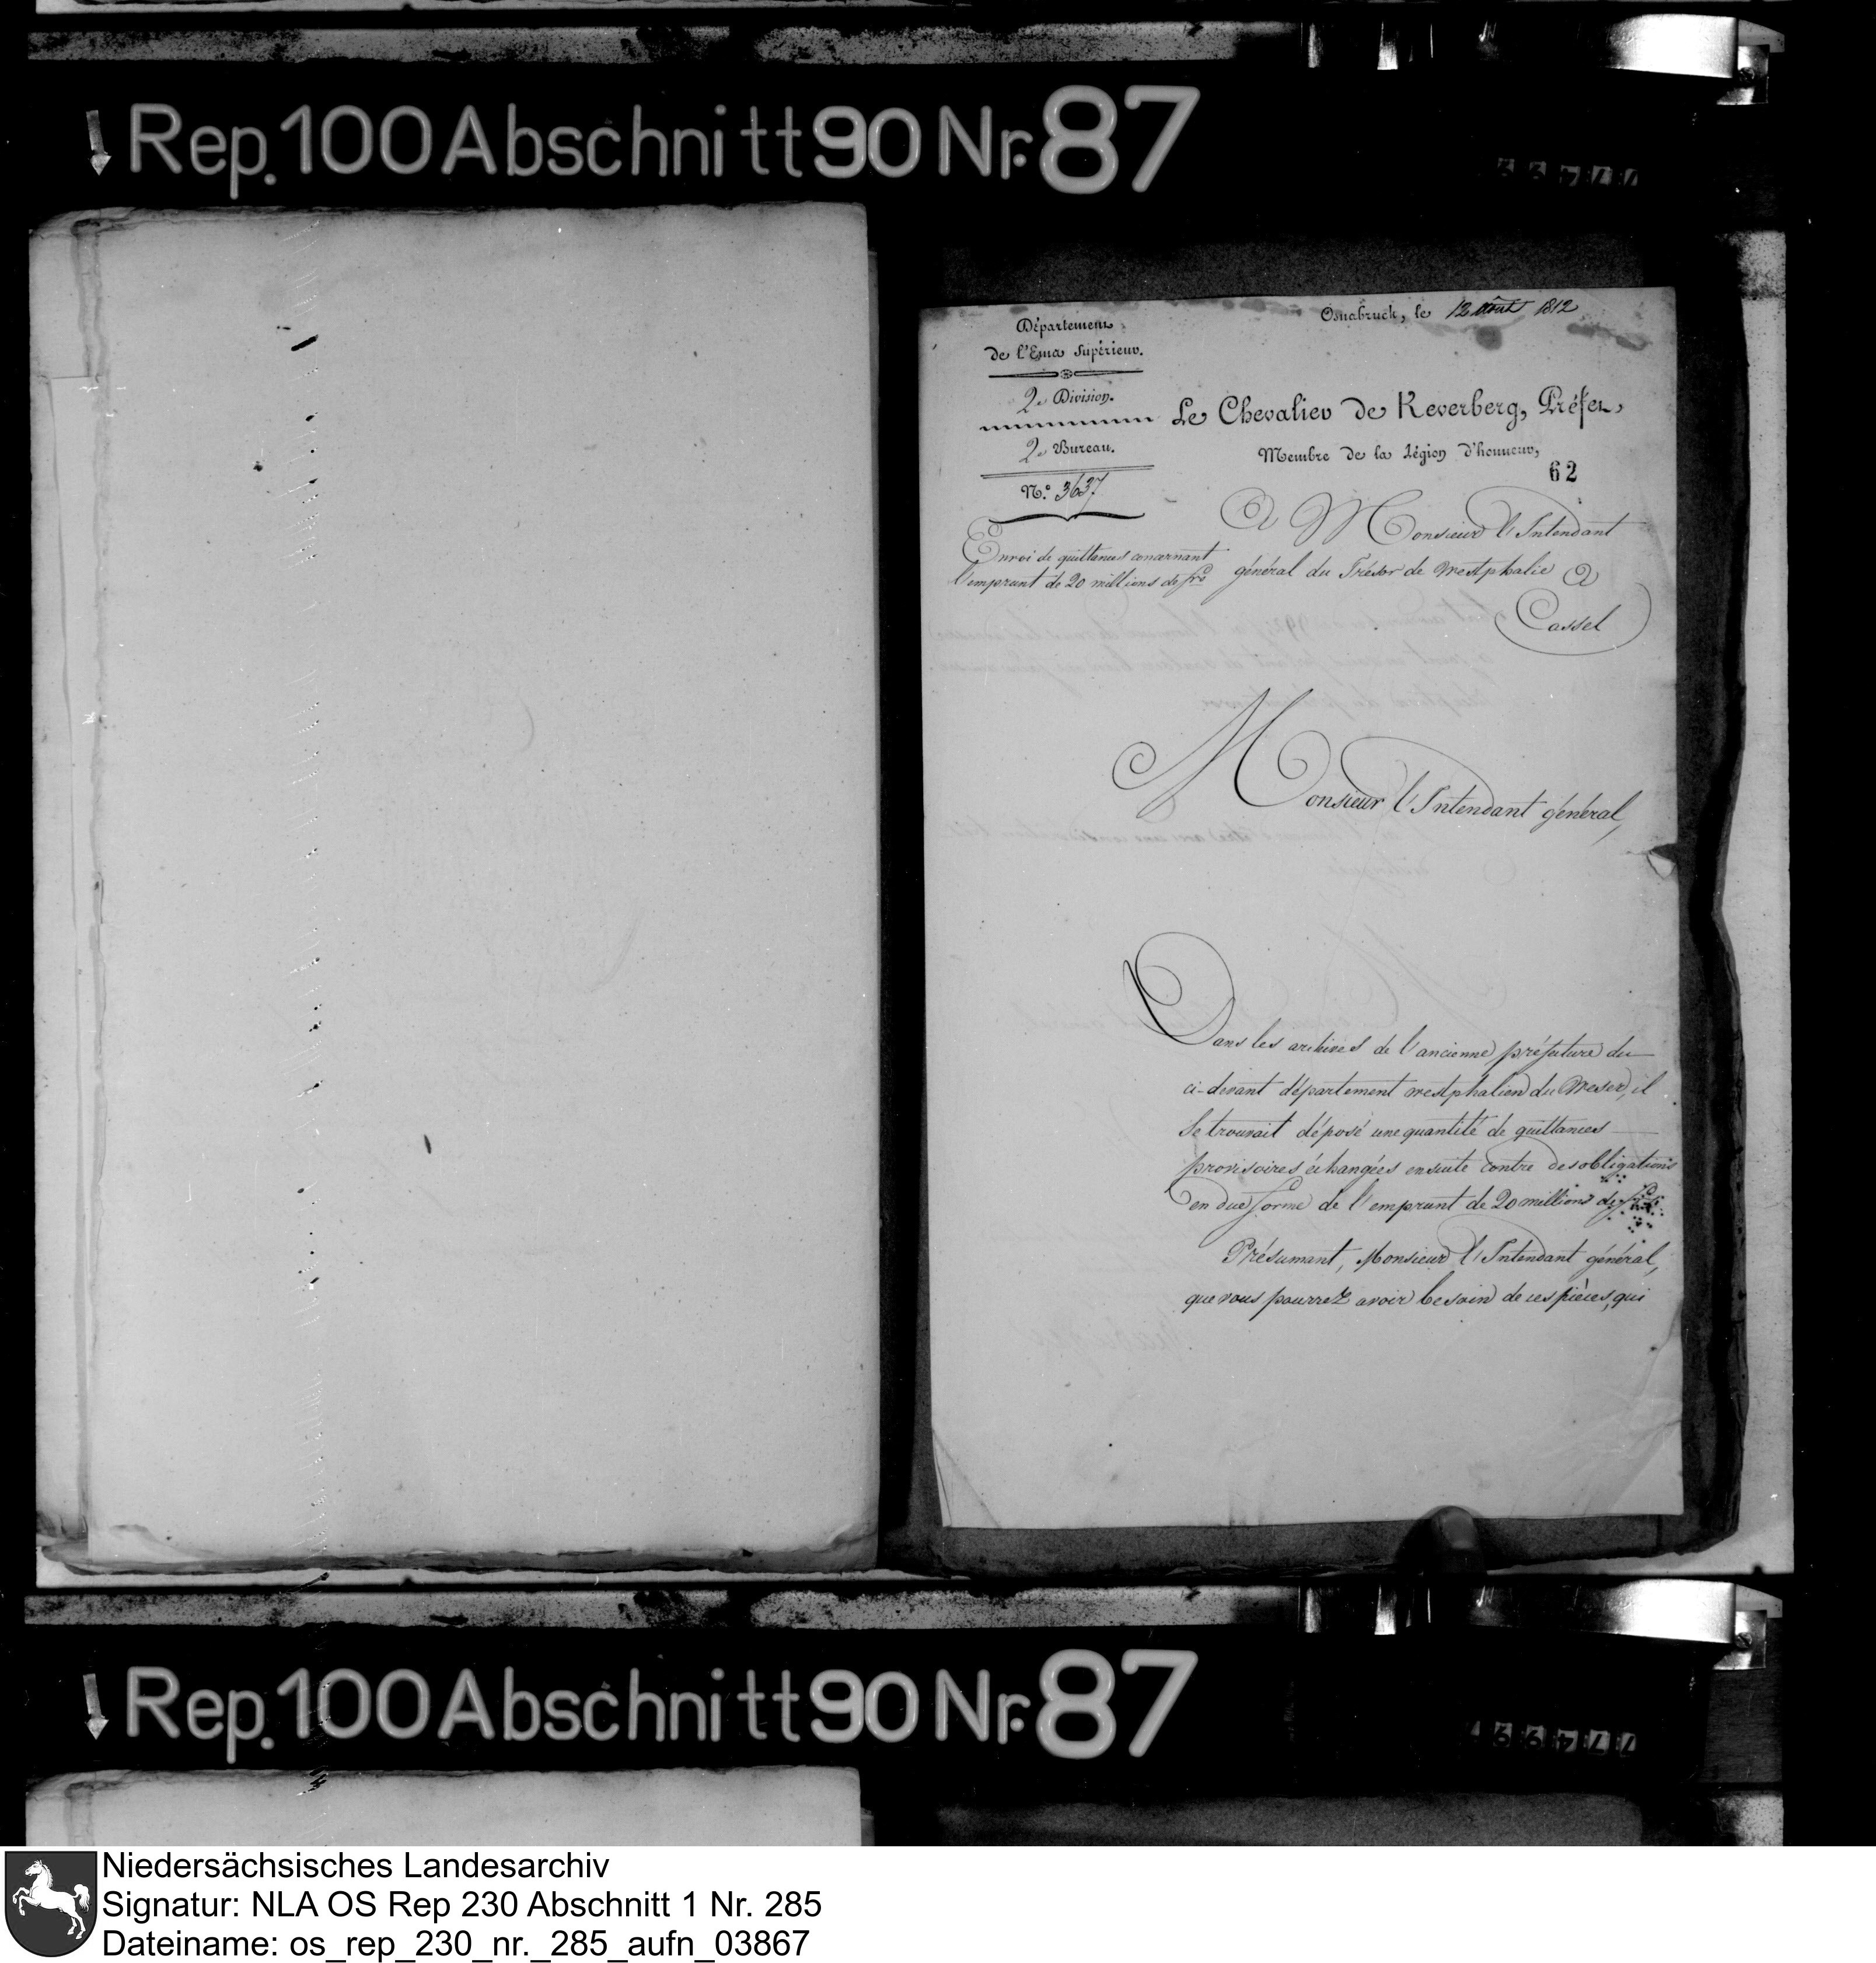 Rep. 100 Abschnitt 90 Nr. 87
Osnabruck, le 12 Août 1812
Département
de l'Ems Supérieur.
2e Division.
2e Bureau.
N.° 3637
Le Chevalier de Keverberg, Préfet,
Membre de la Légion d'honneur,
62
A Monsieur l'Intendant
général du Trésor de Westphalie à
Cassel
Envoi de quittances concernant
l'emprunt de 20 millions de frcs
Monsieur l'Intendant général,
Dans les archives de l'ancienne préfecture du
ci-devant département westphalien du Weser, il
se trouvait déposé une quantité de quittances
provisoires échangées ensuite contre des obligations
en due forme de l'emprunt de 20 millions de frcs.
Présumant, Monsieur l'Intendant général,
que vous pourrez avoir besoin de ces pièces, qui
Rep. 100 Abschnitt 90 Nr. 87
Niedersächsisches Landesarchiv
Signatur: NLA OS Rep 230 Abschnitt 1 Nr. 285
Dateiname: os_rep_230_nr._285_aufn_03867